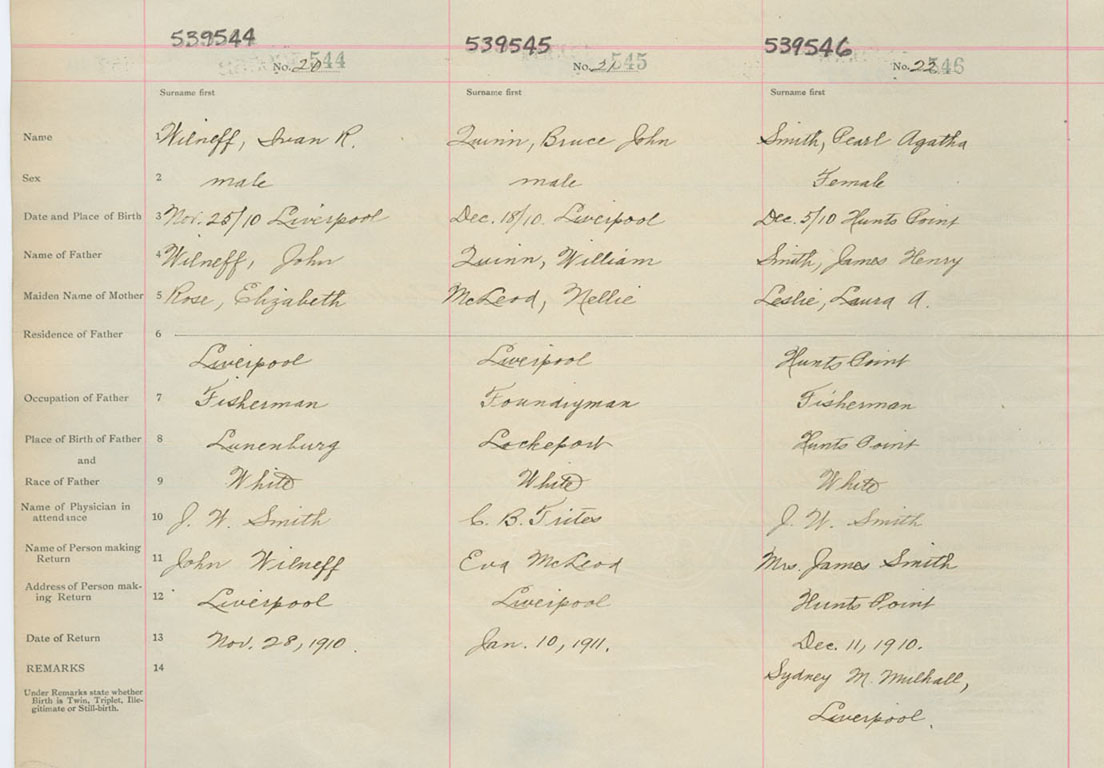 539544 539545 539546
No. 20 544 No. 21 545 No. 22 546
Surname first Surname first Surname first
Name 1 Wilneff, Ivan R. Quinn, Bruce John Smith, Pearl Agatha
Sex 2 male male Female
Date and Place of Birth 3 Nov. 25/10 Liverpool Dec. 18/10. Liverpool Dec. 5/10 Hunts Point
Name of Father 4 Wilneff, John Quinn, William Smith, James Henry
Maiden Name of Mother 5 Rose, Elizabeth McLeod, Nellie Leslie, Laura A.
Residence of Father 6
Liverpool Liverpool Hunts Point
Occupation of Father 7 Fisherman Foundryman Fisherman
Place of Birth of Father 8 Lunenburg Lockeport Hunts Point
and
Race of Father 9 White White White
Name of Physician in
attendance 10 J. W. Smith C. B. Trites J. W. Smith
Name of Person making
Return 11 John Wilneff Eva McLeod Mrs. James Smith
Address of Person mak-
ing Return 12 Liverpool Liverpool Hunts Point
Date of Return 13 Nov. 28, 1910. Jan. 10, 1911. Dec. 11, 1910.
REMARKS 14 Sydney M. Mulhall,
Under Remarks state whether
Birth is Twin, Triplet, Ille-
gitimate or Still-birth.
Liverpool.